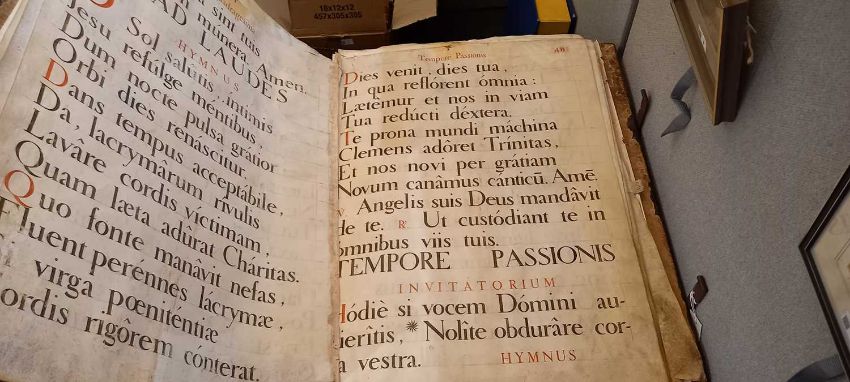 18x12x12
457x305x305
sint tuis
munera. Amen.
AD LAUDES
HYMNUS
Sol salútis, intimis
Jesu refulge mentibus,
Dum nocte pulsa grátior
Orbi dies renascitur.
Dans tempus acceptábile,
Da, lacrymârum rivulis
Lavâre cordis victimam,
Quam læta adûrat Cháritas.
Quo fonte manâvit nefas,
Fluent perénnes lacrymæ,
virga pœniténtiæ
ordis rigôrem conterat.
Tempore Passionis
Dies venit, dies tua,
In qua reflórent ómnia:
Lætémur et nos in viam
Tua redúcti déxtera.
Te prona mundi máchina
Clemens adôret Trínitas,
Et nos novi per grátiam
Novum canâmus cánticū. Amē.
V. Angelis suis Deus mandâvit
de te. R. Ut custódiant te in
omnibus viis tuis.
TEMPORE PASSIONIS
INVITATORIUM
Hódiè si vocem Dómini au-
ierîtis, * Nolîte obdurâre cor-
a vestra. HYMNUS